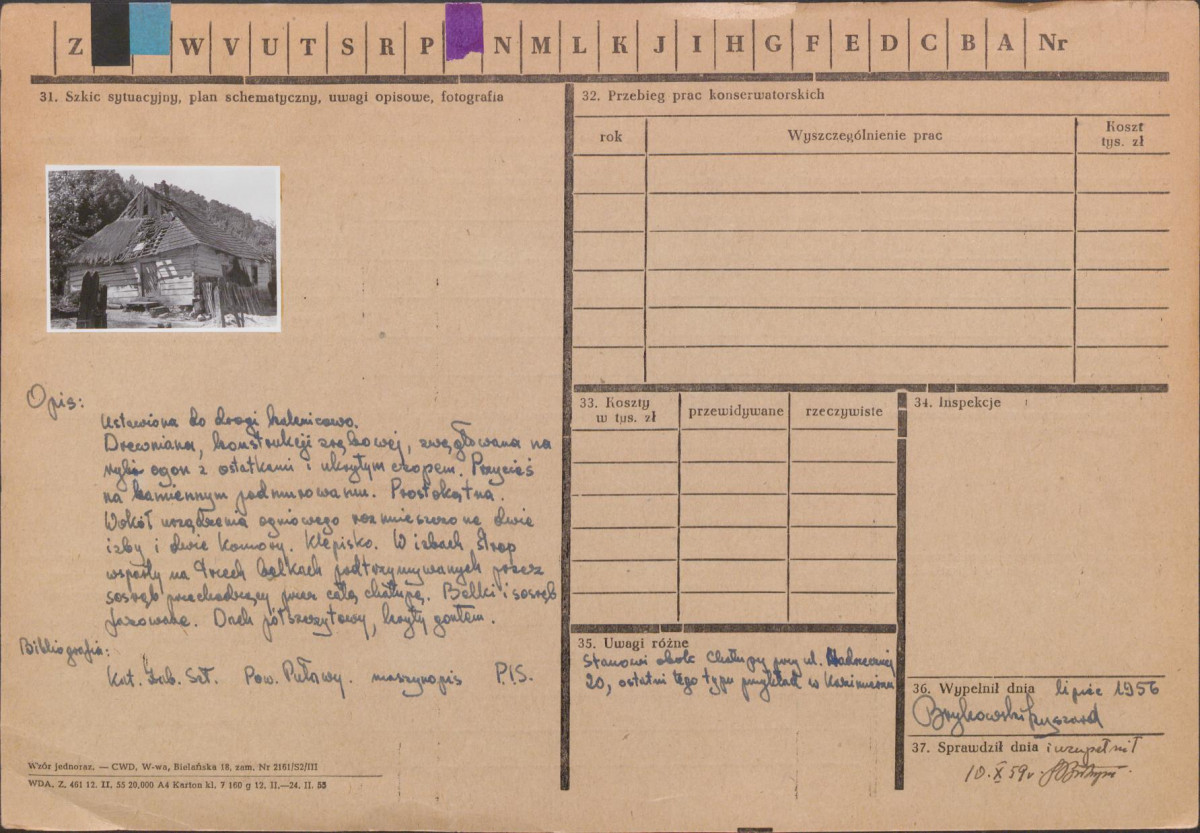 Z W V U T S R P N M L K J I H G F E D C B A Nr
31. Szkic sytuacyjny, plan schematyczny, uwagi opisowe, fotografia
Opis:
Ustawiona do drogi kalenicowo.
Drewniana, konstrukcji zrębowej, zwęgłowana na
rybi ogon z ostatkami i ukrytym czopem. Przycieś
na kamiennym podmurowaniu. Prostokątna.
Wokół urządzenia ogniowego rozmieszczone dwie
izby i dwie komory. Klepisko. W izbach strop
wsparty na trzech belkach podtrzymywanych przez
sosręb przechodzący przez całą chałupę. Belki i sosręb
fazowane. Dach półszczytowy, kryty gontem.
Bibliografia:
Kat. Zab. Szt. Pow. Puławy. maszynopis P.I.S.
Wzór jednoraz. — CWD, W-wa, Bielańska 18, zam. Nr 2161/S2/III
WDA. Z. 461 12. II. 55 20,000 A4 Karton kl. 7 160 g 12. II.—24. II. 55
32. Przebieg prac konserwatorskich
rok
Wyszczególnienie prac
Koszt
tys. zł
33. Koszty
w tys. zł
przewidywane
rzeczywiste
34. Inspekcje
35. Uwagi różne
Stanowi obok chałupy przy ul. Nadrzecznej
20, ostatni tego typu przykład w Kazimierzu
36. Wypełnił dnia lipiec 1956
Brykowski Ryszard
37. Sprawdził dnia i uzupełnił
10. X 59 r.